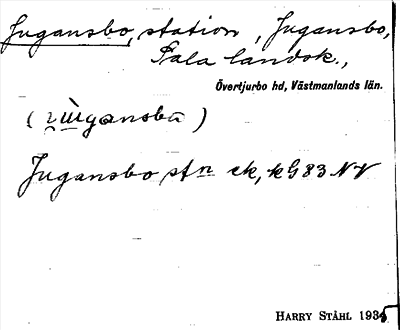 Jugansbo, station, Jugansbo,
Sala landsk.,
Övertjurbo hd, Västmanlands län.
Jugansbo stn ek, kG83 NV
HARRY STÅHL 1935